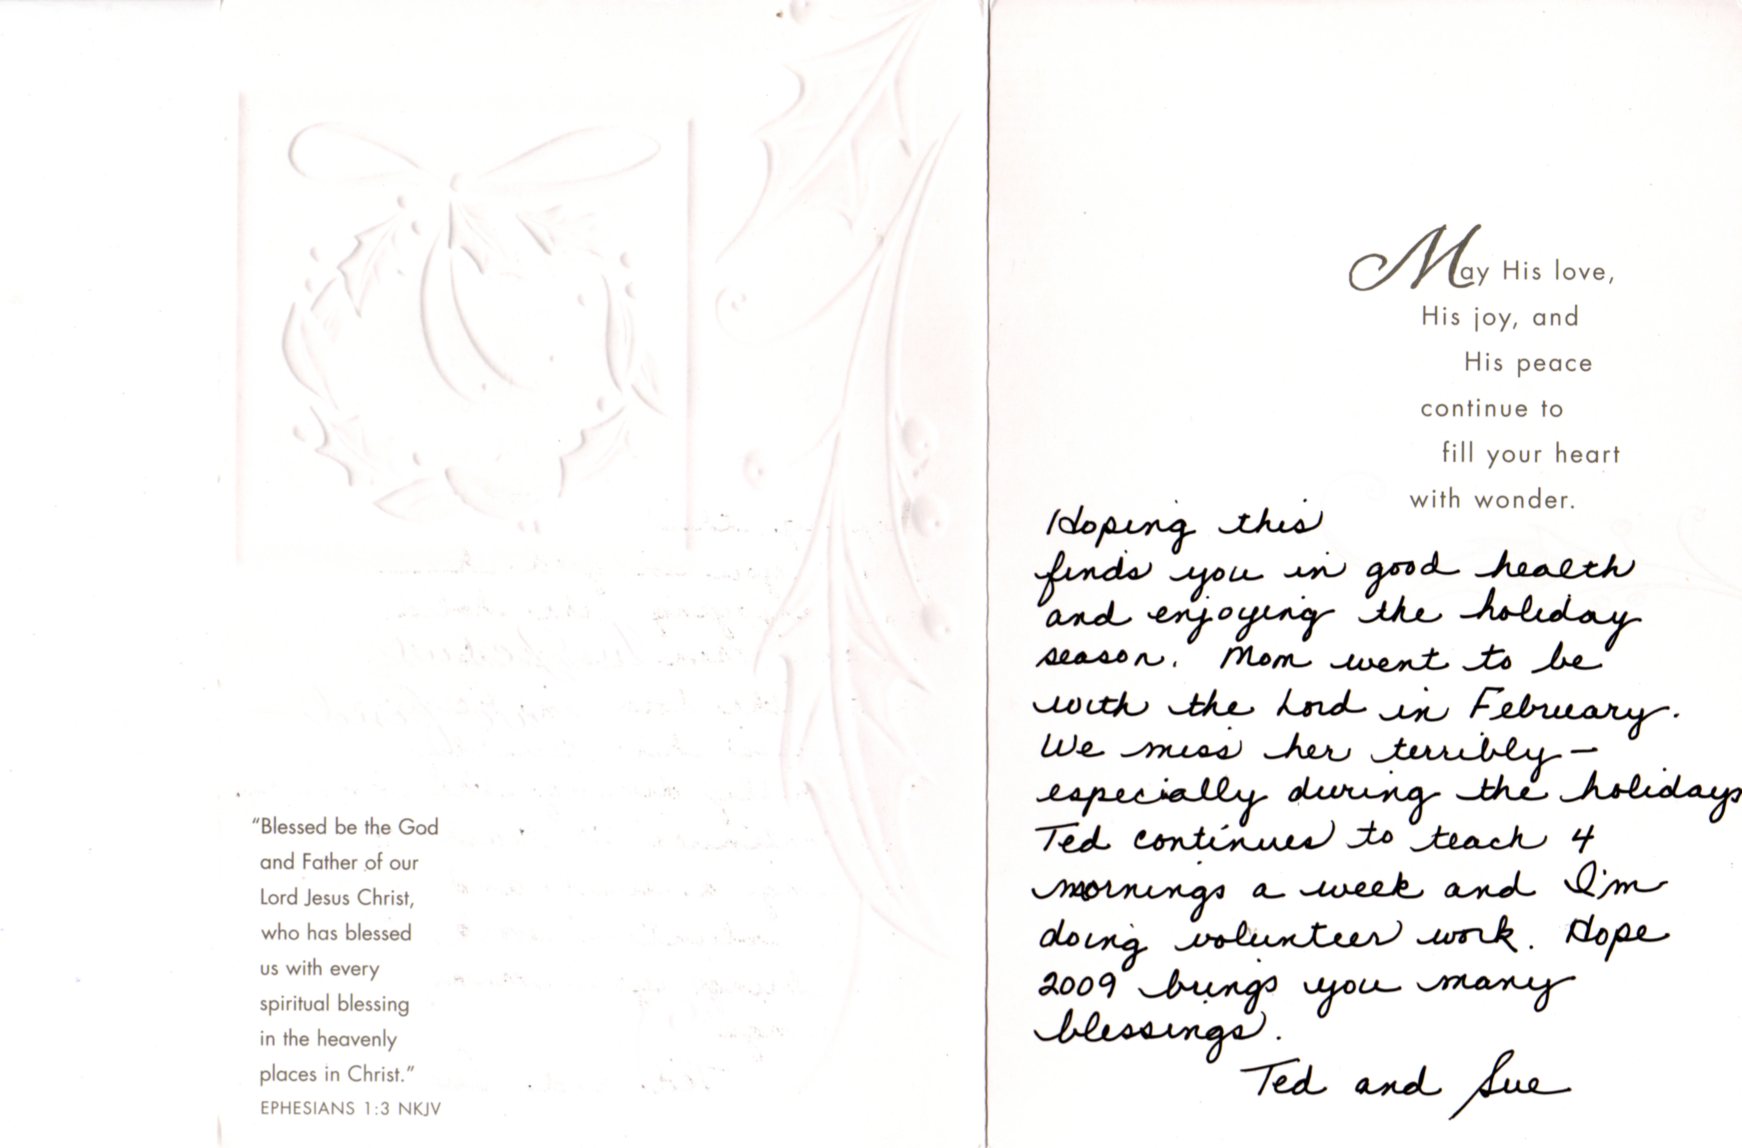 "Blessed be the God
and Father of our
Lord Jesus Christ,
who has blessed
us with every
spiritual blessing
in the heavenly
places in Christ."
EPHESIANS 1:3 NKJV
May His love,
His joy, and
His peace
continue to
fill your heart
with wonder.
Hoping this
finds you in good health
and enjoying the holiday
season. Mom went to be
with the Lord in February.
We miss her terribly –
especially during the holidays
Ted continues to teach 4
mornings a week and I'm
doing volunteer work. Hope
2009 brings you many
blessings.
Ted and Sue